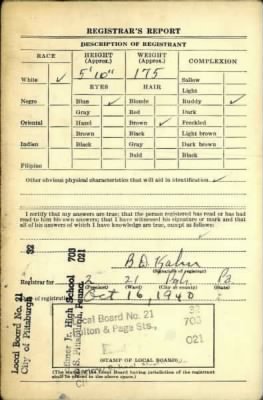 REGISTRAR'S REPORT
DESCRIPTION OF REGISTRANT
RACE HEIGHT (Approx.) WEIGHT (Approx.) COMPLEXION
5' 10" 175
White ✓ Sallow
EYES HAIR Light
Negro Blue ✓ Blonde Ruddy ✓
Gray Red Dark
Oriental Hazel Brown ✓ Freckled
Brown Black Light brown
Indian Black Gray Dark brown
Bald Black
Filipino
Other obvious physical characteristics that will aid in identification
I certify that my answers are true; that the person registered has read or has had
read to him his own answers; that I have witnessed his signature or mark and that
all of his answers of which I have knowledge are true, except as follows:
B. D.
(Signature of registrar)
Registrar for 2 21 Pa
(Ward) (City or county)
of registration Oct 16, 1940
Local Board No. 21 32
City of Pittsburgh 703
021
Jr. High School
Pittsburgh, Penna.
Local Board No. 21 32
703
& Page Sts., 021
(STAMP OF LOCAL BOARD)
(The stamp of the Local Board having jurisdiction of the registrant
shall be placed in the above space.)